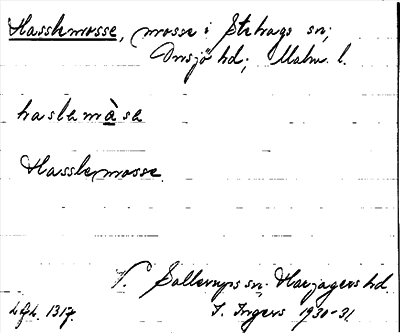 Hasslemosse, mosse i Stehags sn;
Onsjö hd; Malm. l.
haslemåsa
Hasslemosse.
V. Sallerups sn; Harjagers hd.
LGL. 1317. I. Ingers 1930-31